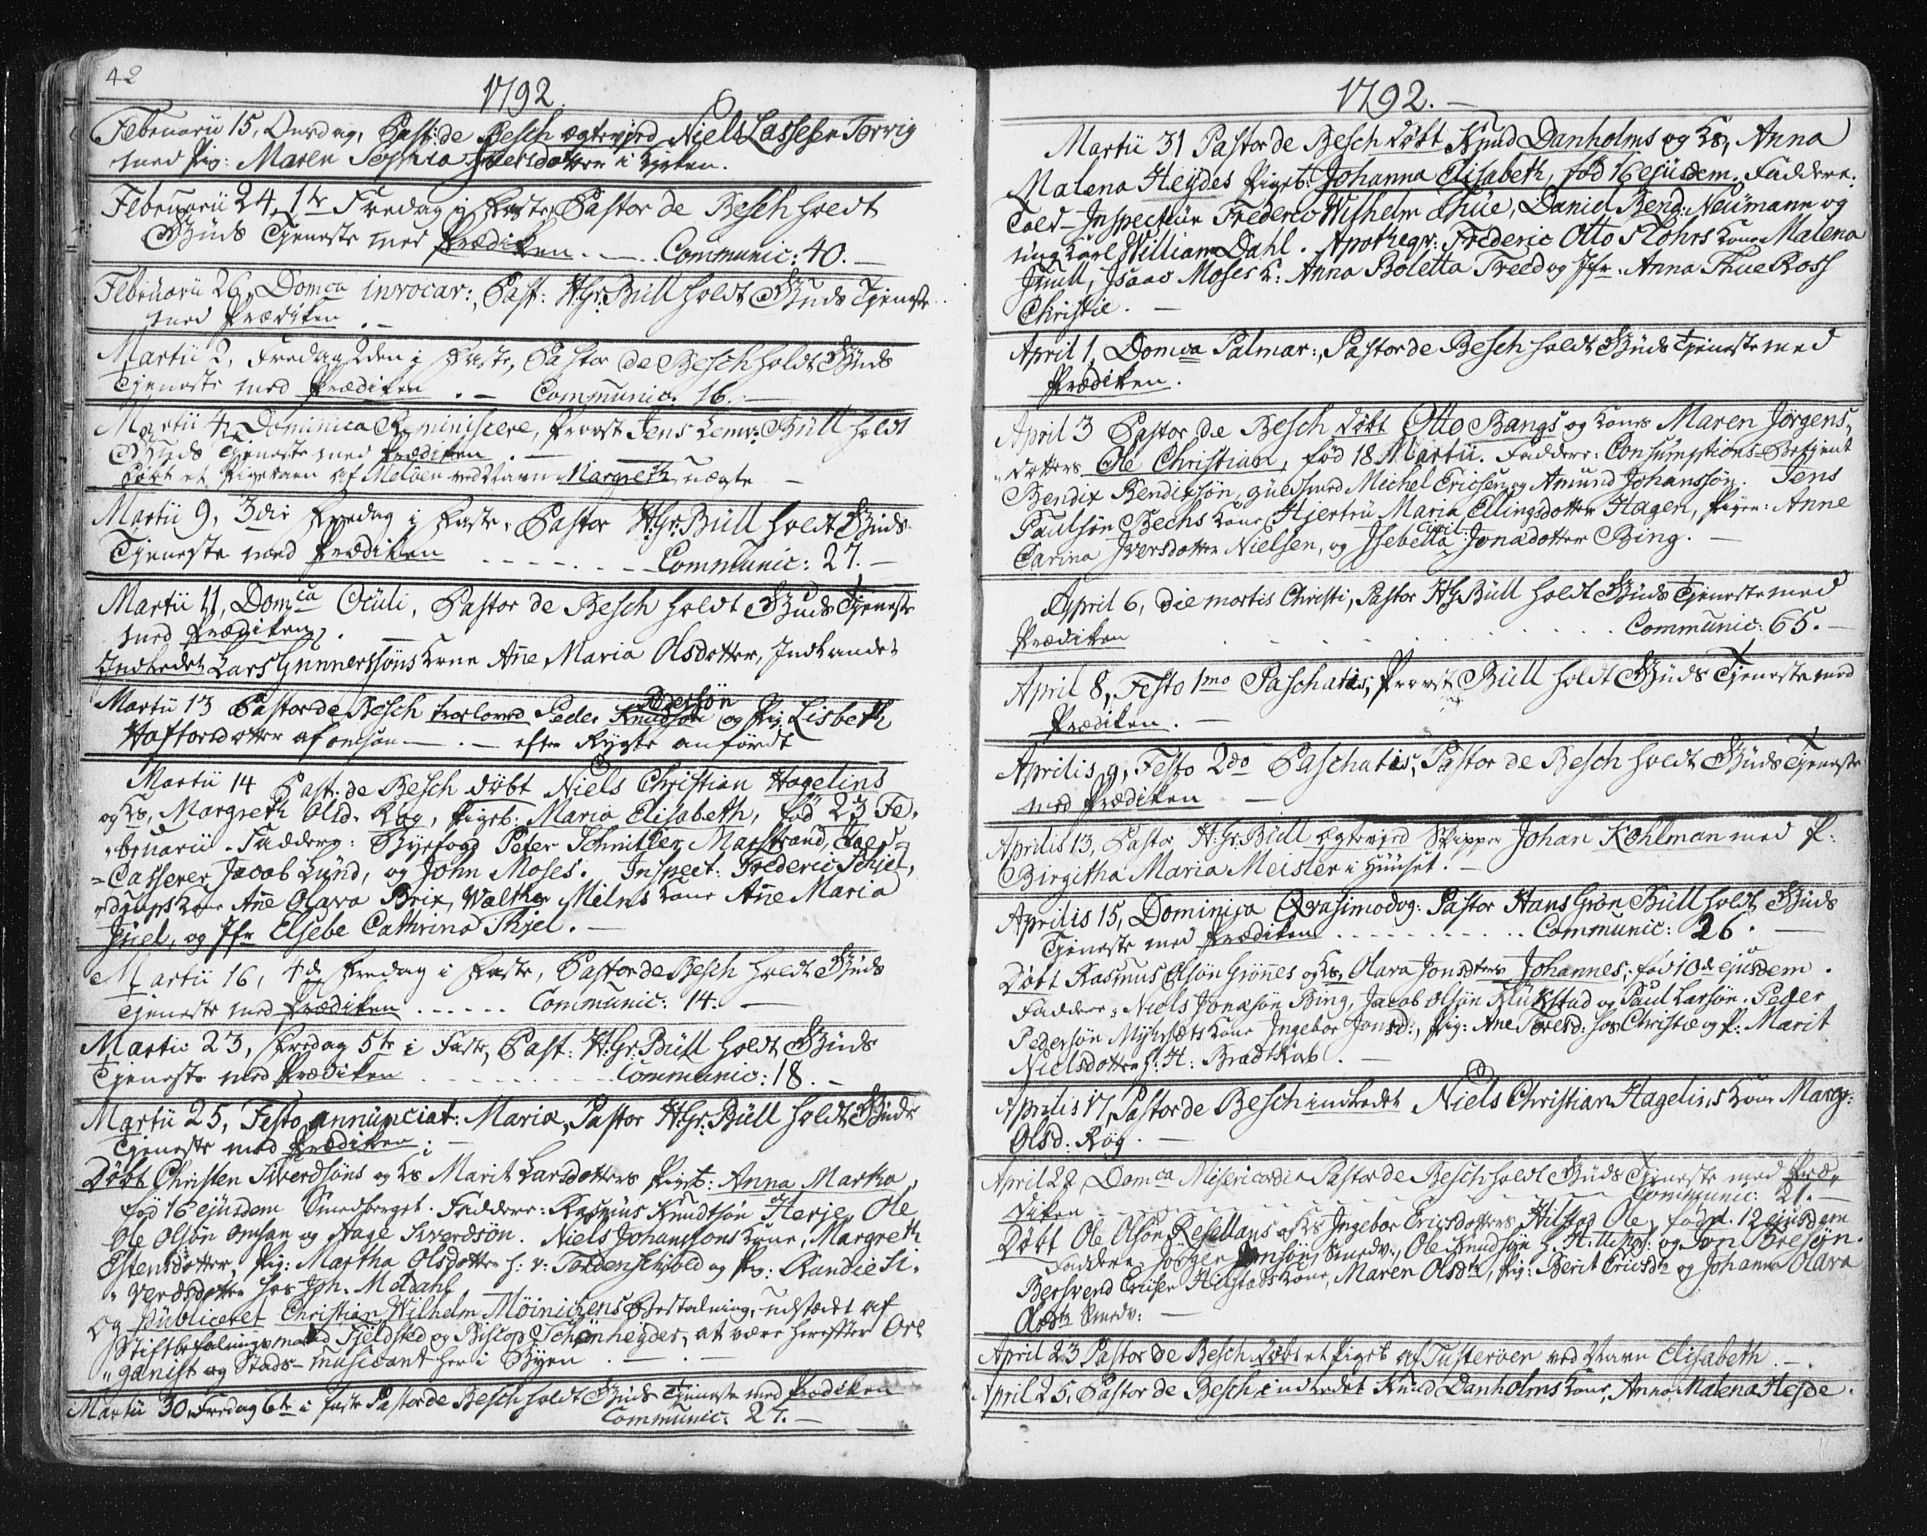 42
1792.
Februarii 15, Onsdag, Past: de Besch ægteviet Niels Lassesen Torvig
med Pig: Maren Sophia Iversdotter i Kirken.
Februarii 24, 1te Fredag i Faste, Pastor de Besch holdt
Guds Tjeneste med Prædiken. — Communic: 40. —
Februarii 26, Domca invocav:, Past: H.Gr. Büll holdt Guds Tjeneste
med Prædiken. —
Martii 2, Fredag 2den i Faste, Pastor de Besch holdt Guds
Tjeneste med Prædiken. — Communic. 16. —
Martii 4, Dominica Reminiscere, Provst Jens Büll holdt
Guds Tjeneste med Prædiken. —
Døbt et Pigebarn af Molöen ved Navn Margreth, uægte —
Martii 9, 3die Fredag i Faste, Pastor H.Gr. Büll holdt Guds-
Tjeneste med Prædiken - - - - - Communic: 27. —
Martii 11, Domca Oculi, Pastor de Besch holdt Guds Tjeneste
med Prædiken.
Indledet Lars Gunnerssöns Kone Ane Maria Olsdotter, Indlandet
Martii 13 Pastor de Besch troloved Peder Knudsøn Pedersøn og Pig. Lisbeth
Haftorsdotter af omsøn — . — efter Rygte anført
Martii 14 Past: de Besch døbt Niels Christian Hagelins
og Ks, Margreth Olsd. Røg, Pigeb: Maria Elisabeth, fød 23 Fe-
bruarii. Faddere: Byefogd Peter Schnitler Marstrand,
Casserer Jacob Lund, og John Moses. Inspect: Frederic Schiel-
drups Kone Ane Olava Brix, Walther Milns Kone Ane Maria
Juel, og Jfr Elsebe Cathrina Thjel. —
Martii 16, 4de Fredag i Faste, Pastor de Besch holdt Guds
Tjeneste med Prædiken . . . . . . Communic: 14. —
Martii 23, Fredag 5te i Faste, Past: H.Gr. Büll holdt Guds
Tjeneste med Prædiken - - - - - - Communic: 18. —
Martii 25, Festo annunciat: Mariæ, Pastor H.Gr. Büll holdt Guds
Tjeneste med Prædiken. —
Døbt Christen Siverdsöns og Ks Marit Larsdotters Pigeb: Anna Martha,
fød 16 ejusdem Smedberget. Faddere: Rasmus Knudtsön Herje, Ole
Ole Olsön omsan og Aage Siverdsön. Niels Johanssons Kone, Margreth
Estensdotter, Pig: Martha Olsdotter h: v: Tordenskiold og Pig: Randie Si-
verdsdotter hos Joh. Modahl —
Og publiceret Christian Wilhelm Möinichens Bestalning, udstædt af
Stiftbefalingsmand Fjeldsted og Biscop Schønheyder, at være herefter Or-
ganist og Stads-Musicant her i Byen . — . —
Martii 30, Fredag 6te i Faste Pastor de Besch holdt Guds Tjeneste med Prædiken
Communic: 27. —
1792. —
Martii 31 Pastor de Besch døbt Knud Danholms og Ks, Anna
Malena Heydes Pigeb: Johanna Elisabeth, fød 16 ejusdem, Faddere:
Told-Inspecteur Frederic Wilhelm Thue, Daniel Bend: Neumann og
ungkarl William Dahl. Apotheqr: Frederic Otto Flohrs Kone Malena
Juul, Isaac Moses K: Anna Boletta Treed og Jfr: Anna Thue Ross
Christie. —
April 1, Domca Palmar:, Pastor de Besch holdt Guds Tjeneste med
Prædiken.
April 3 Pastor de Besch døbt Otto Bangs og Kones Maren Jørgens-
dotters Ole Christian, fød 18 Martii. Faddere: Consumptions-Betjent
Bendix Bendixsön, Guldsmed Michel Ericsen og Amund Johanssön. Jens
Paulsøn Bechs Kone Hjertru Maria Ellingsdotter Hagen, Piger: Anne
Carina Iversdotter Nielsen, og Isebella Civil: Jonadotter Bing. —
April 6, die mortis Christi, Pastor H.Gr Büll holdt Guds Tjeneste med
Prædiken . . . . . . . . Communic: 65. —
April 8, Festo 1mo Paschatis, Provst Büll holdt Guds Tjeneste med
Prædiken. —
Aprilis 9, Festo 2do Paschatis, Pastor de Besch holdt Guds Tjeneste
med Prædiken —
Aprilis 13, Pastor H.Gr. Büll ægteviet Skipper Johan Kohlman med P:
Birgitha Maria Meisler i Huuset. —
Aprilis 15, Dominica Qvasimodog: Pastor Hans Grøn Büll holdt Guds
Tjeneste med Prædiken . . . . . . . Communic: 26. —
Døbt Rasmus Olsøn Grønes og Ks, Olava Jonsdotters Johannes; fød 10de ejusdem.
Faddere: Niels Jonasøn Bing, Jacob Olsøn Klükstad og Paul Larsøn. Peder
Pedersøn Kone Ingebor Jonsd:, Pig: Ane Toresd: hos Christie og P: Marit
Nielsdotter h: H: Bradtkob. —
Aprilis 17, Pastor de Besch indledet Niels Christian Hagelins Kone Marg:
Olsd: Røg. —
April 22, Domca Misericordia Pastor de Besch holdt Guds Tjeneste med Præ-
diken . . . . . Communic: 21. —
Døbt Ole Olsön Resellans og Ks Ingebor Ericsdotters Ole, född. 12 ejusdem
Faddere Jørger Smedv., Ole Knudsøn h. H: og Jon Bresön.
Bersvend Ericsen Kone, Maren Olsdtr, Pig: Berit Ericsdtr og Johanna Olava
Olsdtr Smedv: —
April 23 Pastor de Besch døbt et Pigeb. af Tusteröen ved Navn Elisabeth. —
April 25, Pastor de Besch indledet Knud Danholms Kone, Anna Malena Hejde.